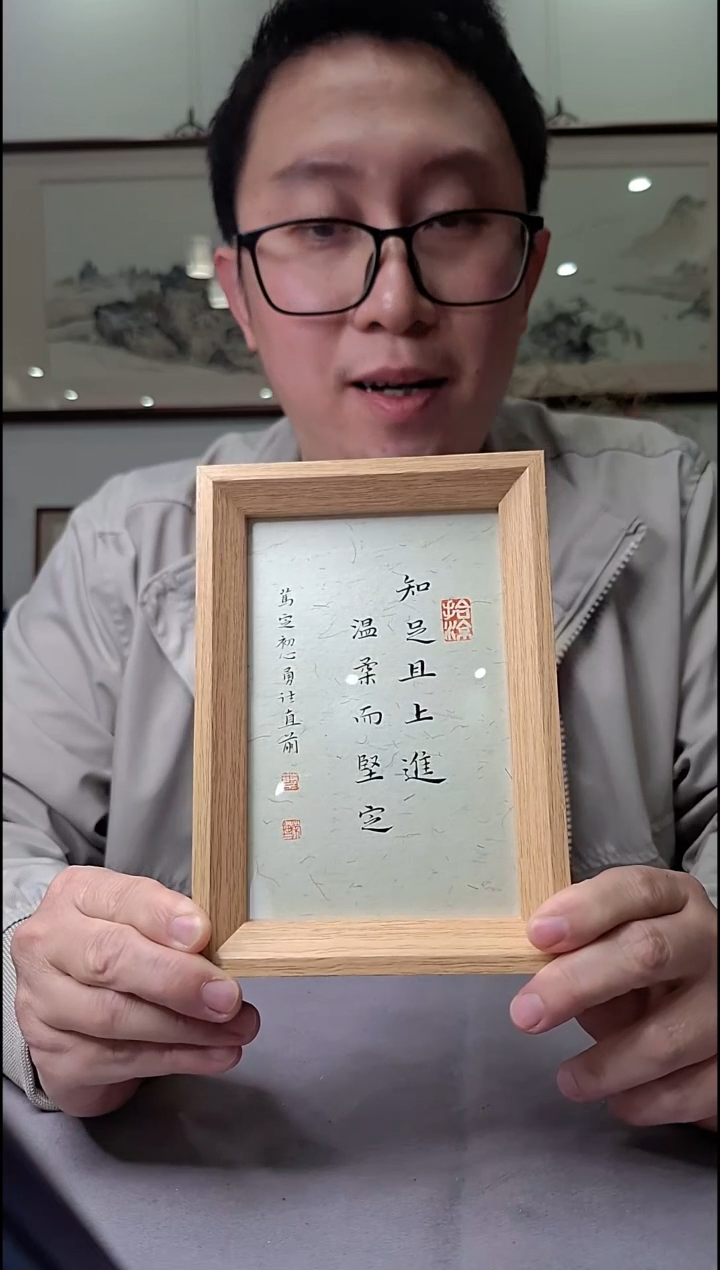 知足且上進
温柔而堅定
篤定初心勇往直前